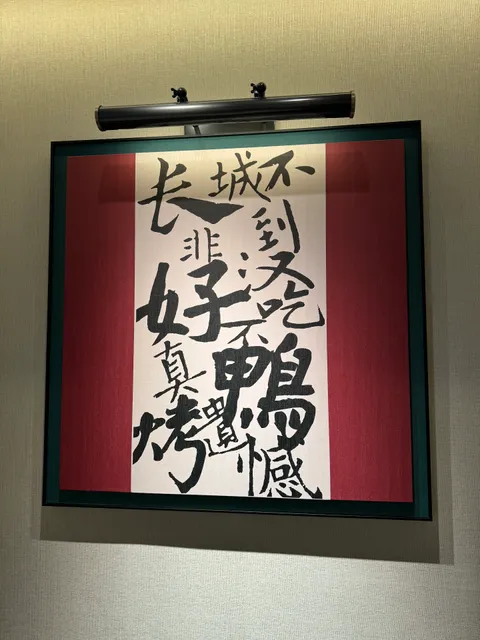 不到长城非好汉
不吃烤鴨真遺憾